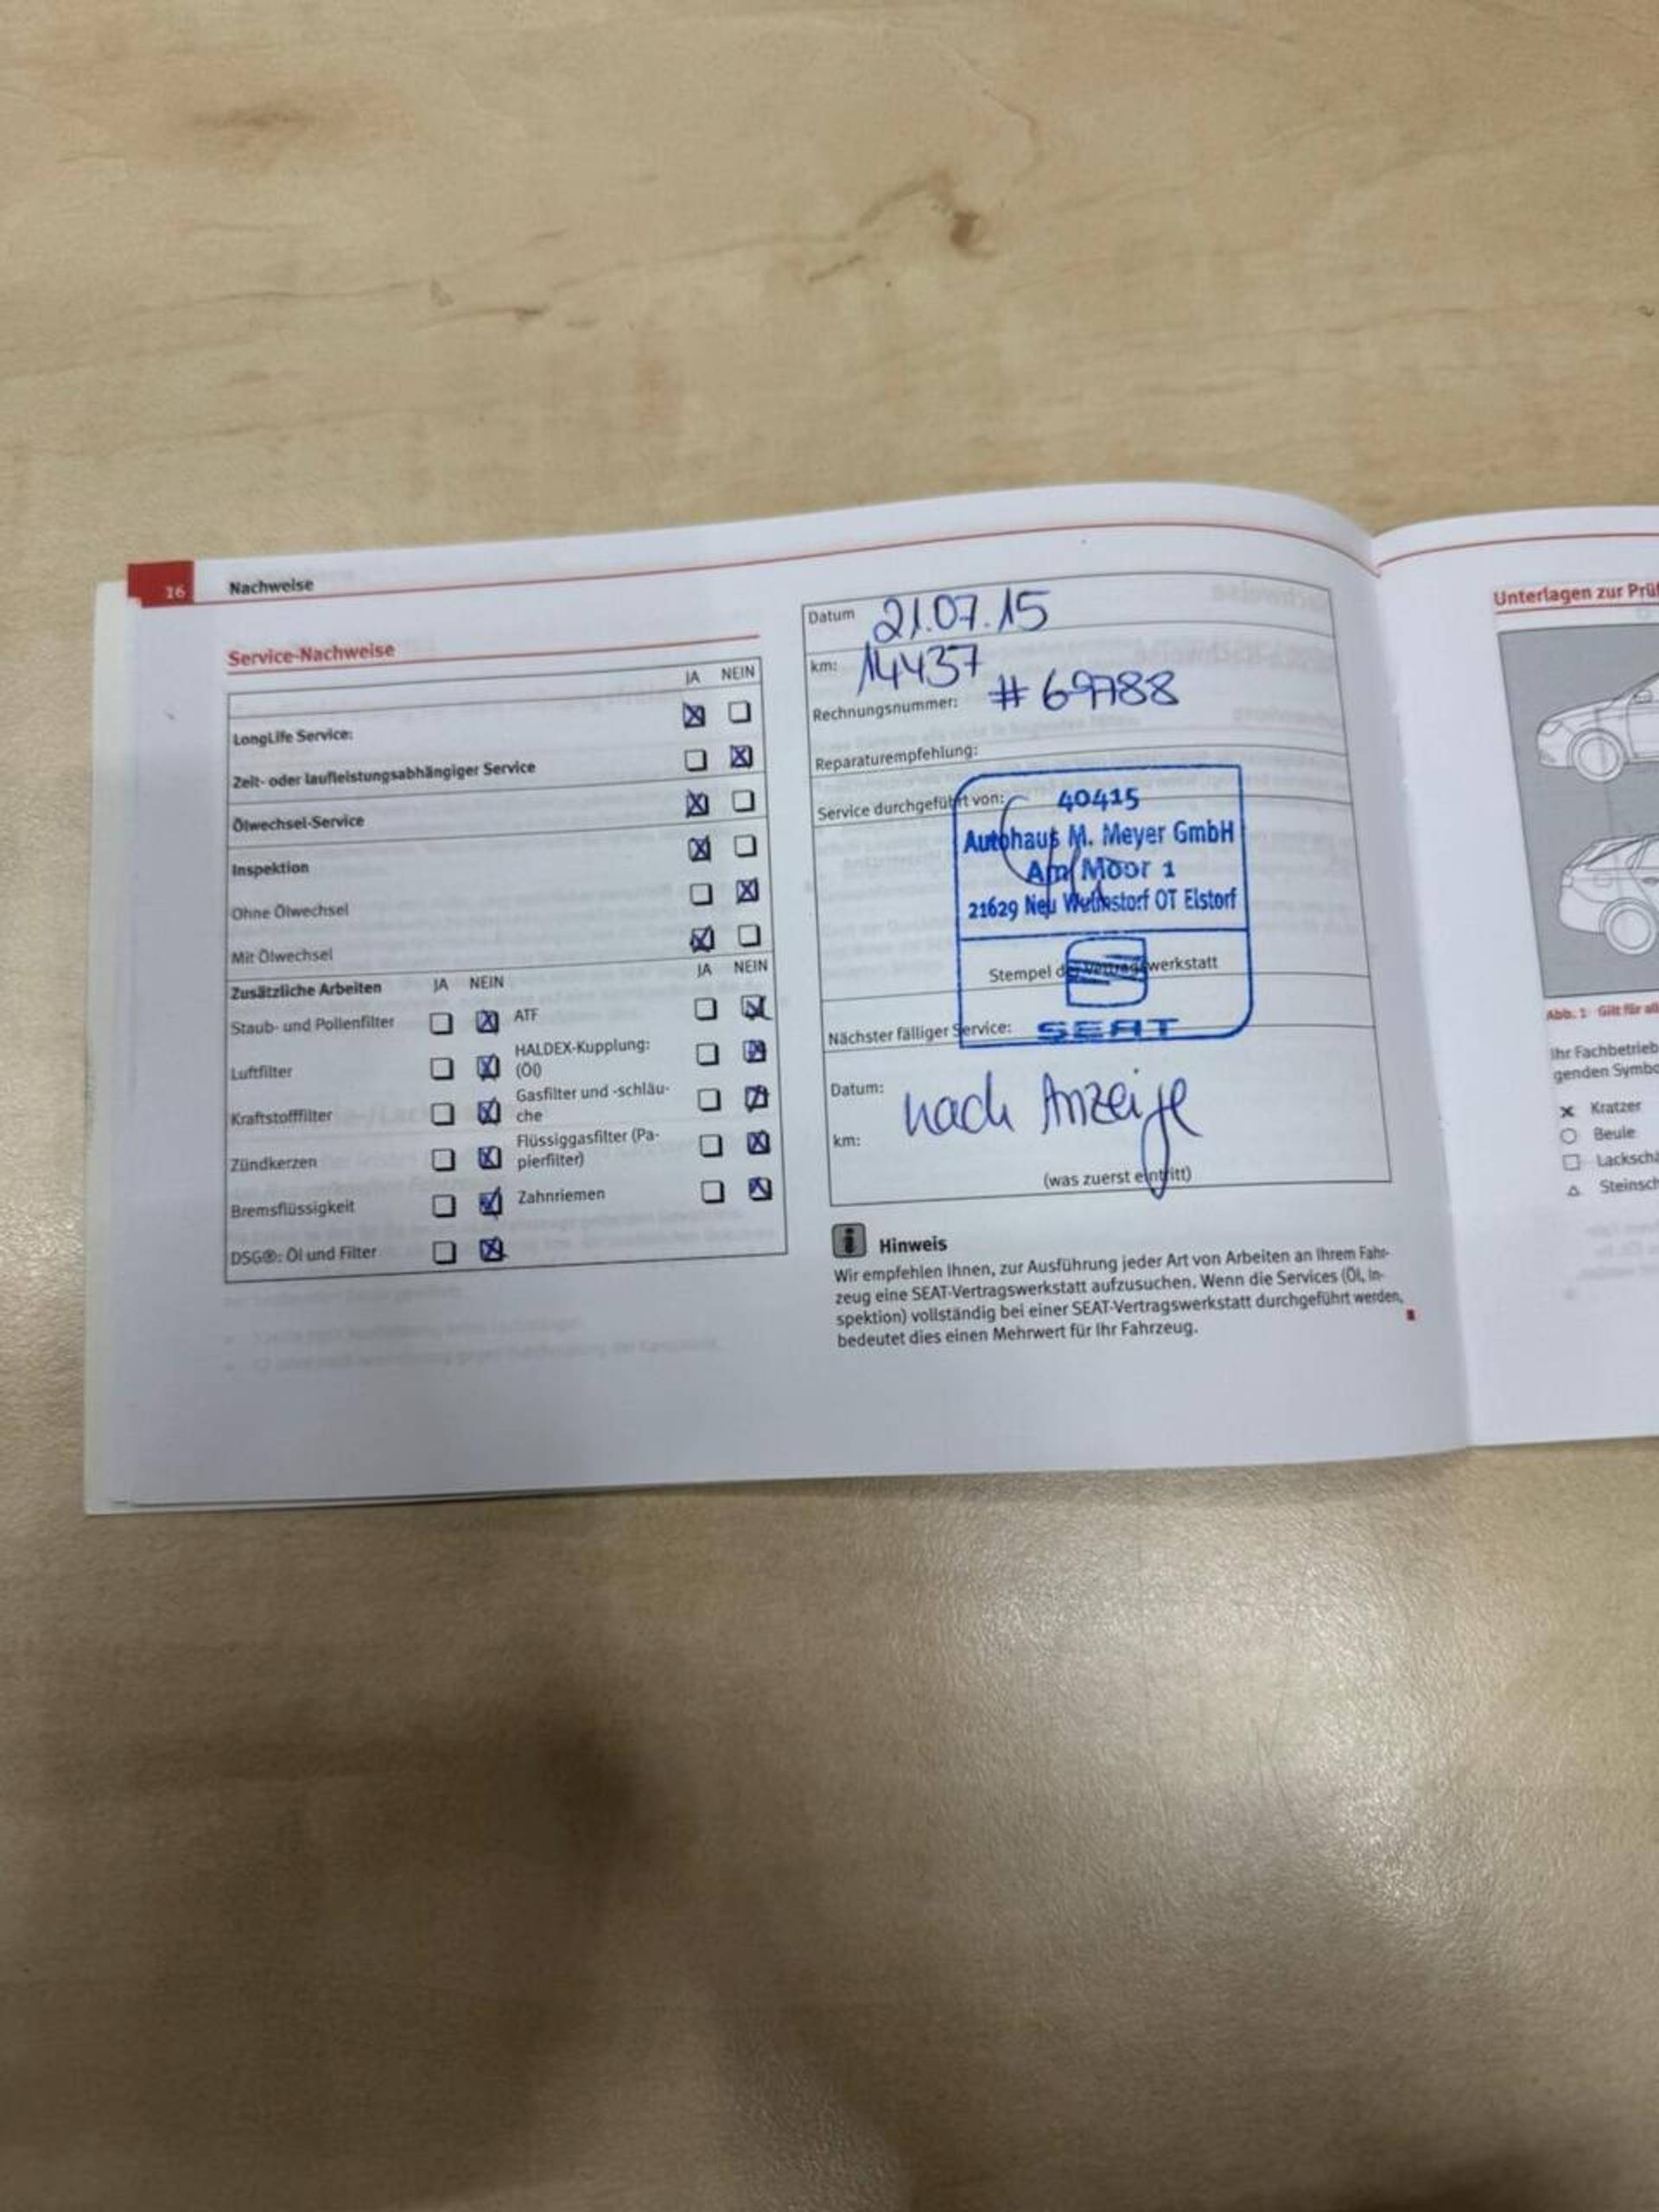 16
Nachweise
Service-Nachweise
JA NEIN
LongLife Service:
Zeit- oder laufleistungsabhängiger Service
Ölwechsel-Service
Inspektion
Ohne Ölwechsel
Mit Ölwechsel
Zusätzliche Arbeiten JA NEIN JA NEIN
Staub- und Pollenfilter ATF
Luftfilter HALDEX-Kupplung:
(Öl)
Kraftstofffilter Gasfilter und -schläu-
che
Zündkerzen Flüssiggasfilter (Pa-
pierfilter)
Bremsflüssigkeit Zahnriemen
DSG®: Öl und Filter
Datum 21.07.15
km: 14437
Rechnungsnummer: # 69788
Reparaturempfehlung:
Service durchgeführt von:
40415
Autohaus M. Meyer GmbH
Am Moor 1
21629 Neu Wulmstorf OT Elstorf
Stempel der Vertragswerkstatt
SEAT
Nächster fälliger Service:
Datum: nach Anzeige
km:
(was zuerst eintritt)
Hinweis
Wir empfehlen Ihnen, zur Ausführung jeder Art von Arbeiten an Ihrem Fahr-
zeug eine SEAT-Vertragswerkstatt aufzusuchen. Wenn die Services (Öl, In-
spektion) vollständig bei einer SEAT-Vertragswerkstatt durchgeführt werden,
bedeutet dies einen Mehrwert für Ihr Fahrzeug.
Unterlagen zur Prüf
Abb. 1 Gilt für all
Ihr Fachbetrieb
genden Symbo
Kratzer
Beule
Lackschä
Steinsch